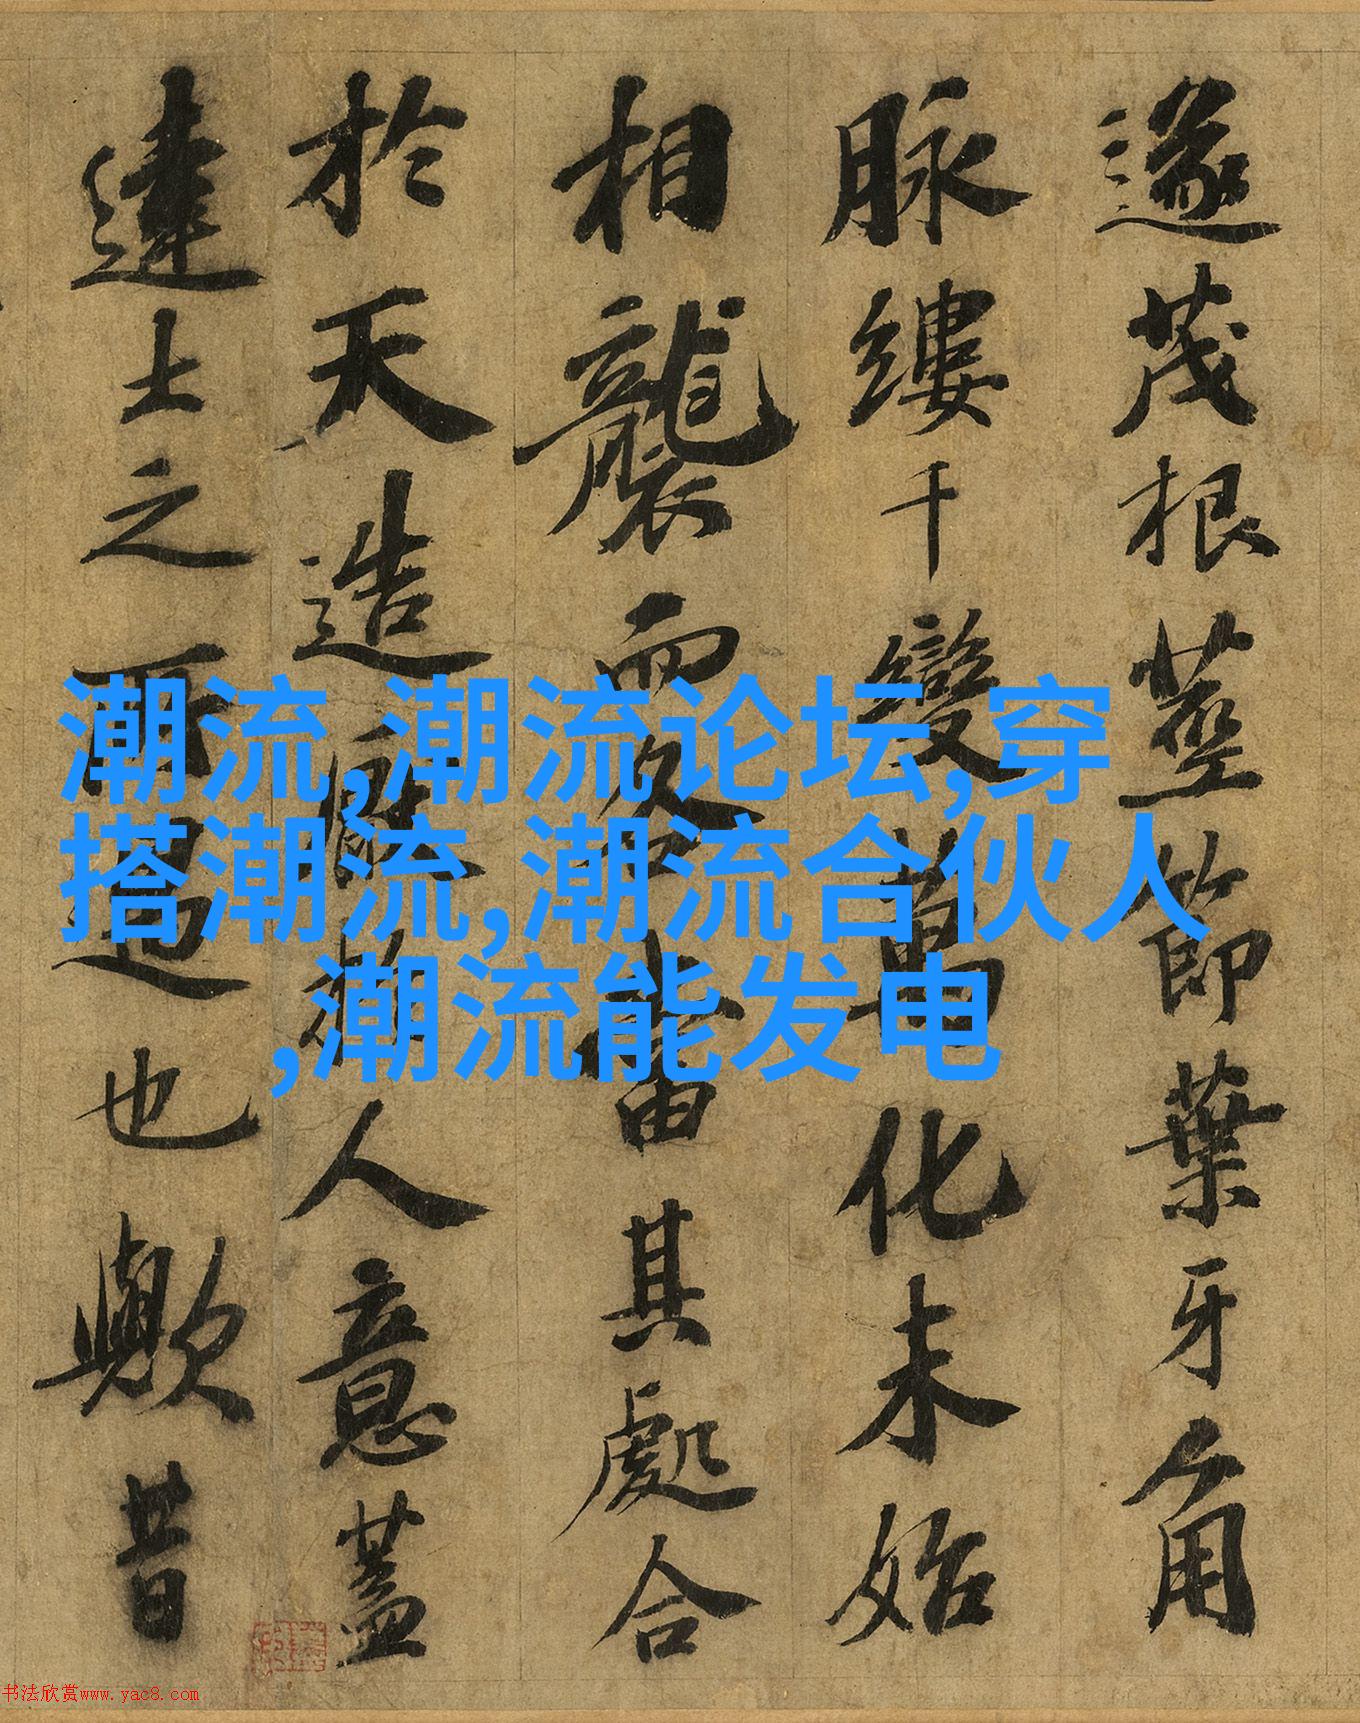 遂茂根莖節葉牙角
脉縷千變萬化未始
相襲而各當其處合
於天造厭於人意蓋
達士之所也歟昔
潮流,潮流论坛,穿
搭潮流,潮流合伙人
,潮流能发电
书法欣赏www.yac8.com